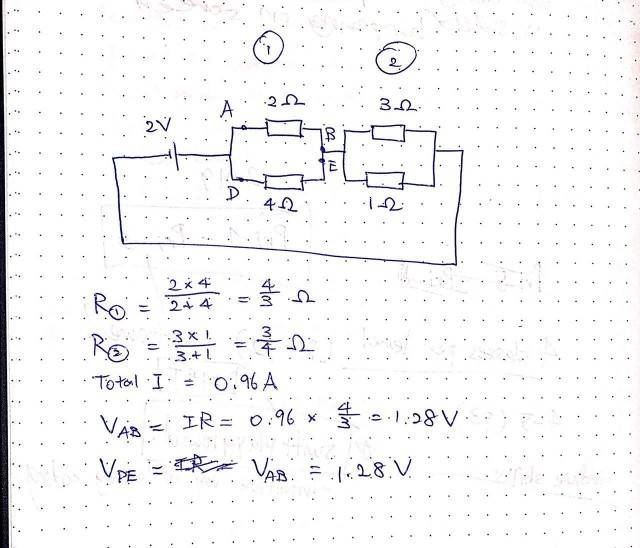 ① ②
A 2Ω 3Ω
2V B
E
D 4Ω 1Ω
R① = 2×4 / 2+4 = 4/3 Ω
R② = 3×1 / 3+1 = 3/4 Ω
Total I = 0.96A
V_AB = IR = 0.96 × 4/3 = 1.28V
V_DE = IR V_AB = 1.28V